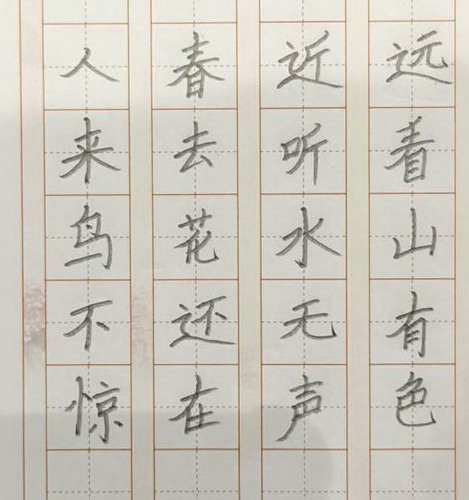 远着山有色
近听水无声
春去花还在
人来鸟不惊